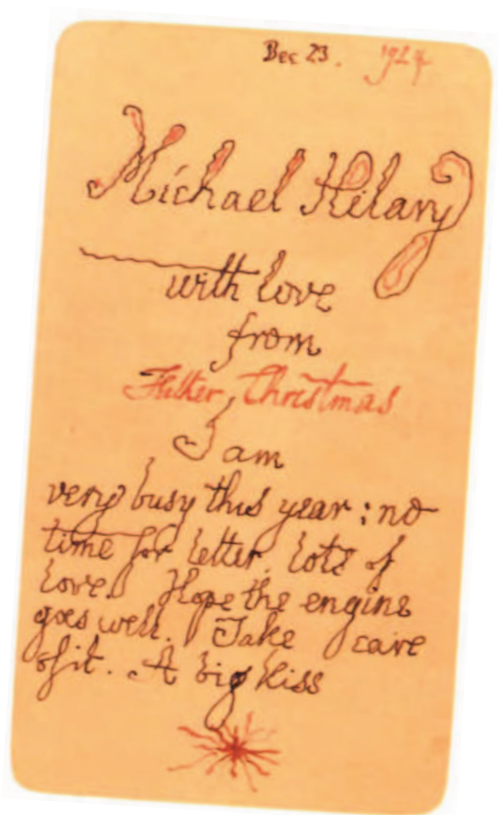 Dec 23. 1924
Michael Hilary
with love
from
Father Christmas
I am
very busy this year: no
time for letter. Lots of
love. Hope the engine
goes well. Take care
of it. A big kiss